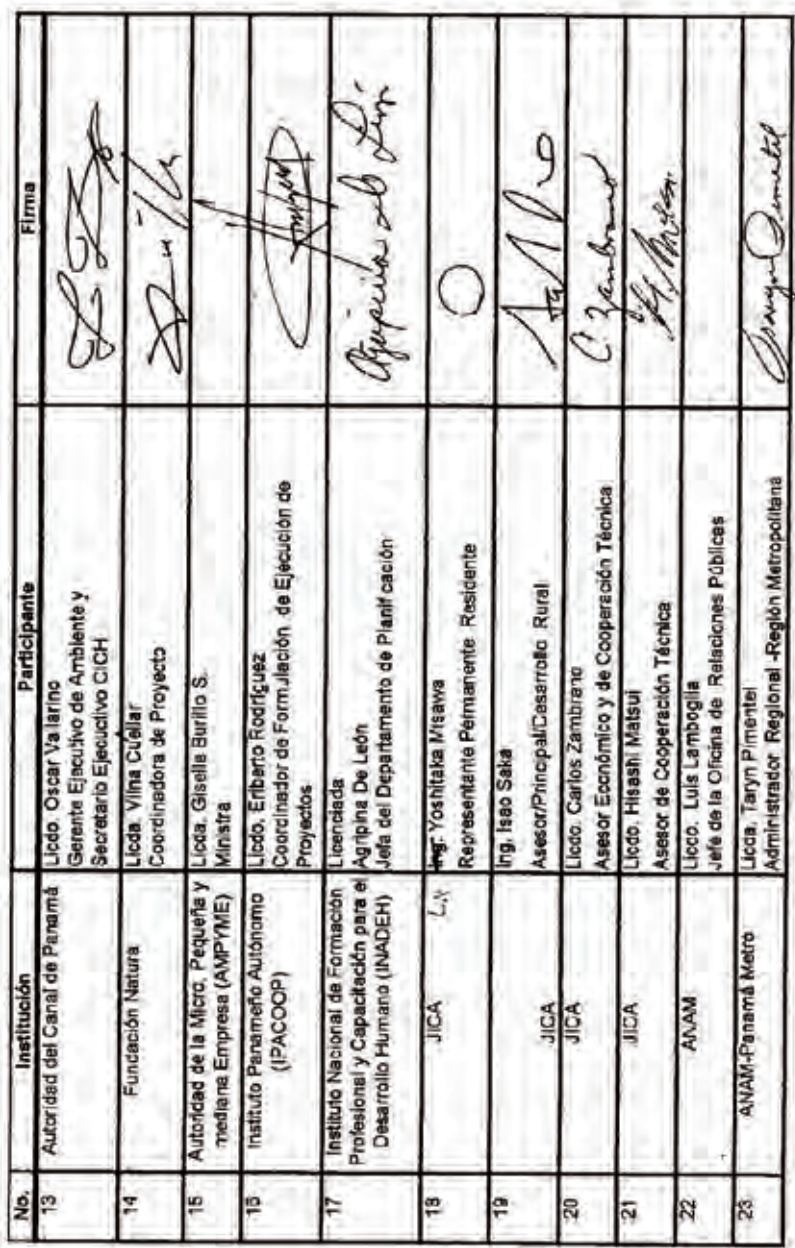 No. Institución Participante Firma
13 Autoridad del Canal de Panamá Licdo. Oscar Vallarino
Gerente Ejecutivo de Ambiente y
Secretario Ejecutivo CICH
14 Fundación Natura Licda. Vilna Cuéllar
Coordinadora de Proyecto
15 Autoridad de la Micro, Pequeña y
mediana Empresa (AMPYME)
Licda. Gisella Burillo S.
Ministra
16 Instituto Panameño Autónomo
(IPACOOP)
Licdo. Eriberto Rodríguez
Coordinador de Formulación de Ejecución de
Proyectos
17 Instituto Nacional de Formación
Profesional y Capacitación para el
Desarrollo Humano (INADEH)
Licenciada
Agripina De León
Jefa del Departamento de Planificación
Agripina de León
18 JICA
Ing. Yoshitaka Misawa
Representante Permanente Residente
19 JICA
Ing. Isao Saka
Asesor/Principal/Desarrollo Rural
20 JICA
Licdo. Carlos Zambrano
Asesor Económico y de Cooperación Técnica
C. Zambrano
21 JICA
Licdo. Hisashi Matsui
Asesor de Cooperación Técnica
22 ANAM
Licdo. Luis Lamboglia
Jefe de la Oficina de Relaciones Públicas
23 ANAM-Panamá Metro
Licda. Taryn Pimentel
Administrador Regional -Región Metropolitana